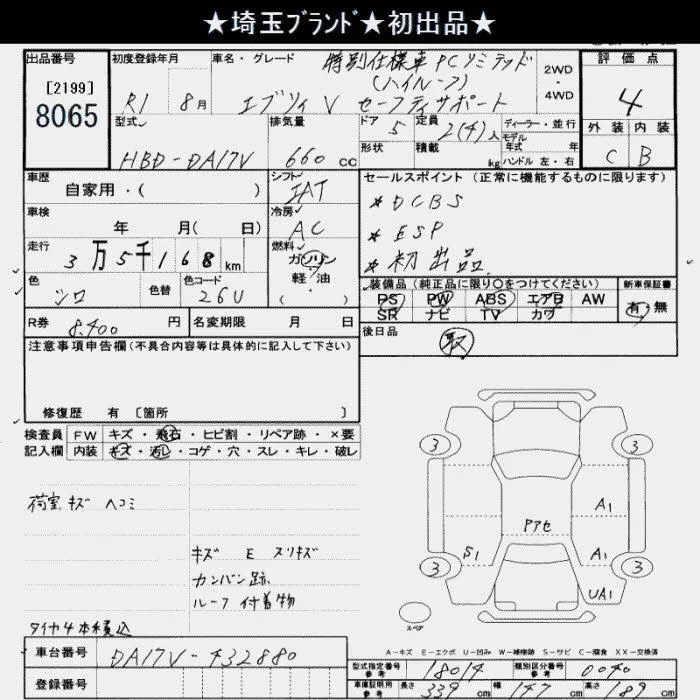 ★埼玉ﾌﾞﾗﾝﾄﾞ★初出品★
出品番号
[2199]
8065
初度登録年月
R1 8月
車名・グレード
特別仕様車 PCリミテッド
(ハイルーフ)
エブリィ V セーフティサポート
2WD・4WD
評価点
4
外装 内装
C B
型式
HBD-DA17V
排気量
660 cc
ドア
5
定員
2(4)人
形状
積載
kg
ディーラー・並行
モデル年式 年
ハンドル 左・右
車歴
自家用・( )
シフト
IAT
車検
年 月( 日)
冷房
AC
走行
3万5千168km
燃料
ガソリン
軽・油
( )
色
シロ
色替
色コード
26U
セールスポイント (正常に機能するものに限ります)
* DCBS
* ESP
* 初出品.
装備品(純正品に限り○をつけてください)
PS PW ABS エアB AW
SR ナビ TV カワ
新車保証書
有・無
R券
8,400 円
名変期限 月 日
後日品
取
注意事項申告欄(不具合内容等は具体的に記入して下さい)
修復歴 有 〔箇所 〕
検査員記入欄
FW キズ・飛石・ヒビ割・リペア跡・×要
内装 キズ・汚レ・コゲ・穴・スレ・キレ・破レ
荷室 キズ ヘコミ
キズ E スリキズ
カンバン跡
ルーフ 付着物
タイヤ4本積込
3
3
3
3
A1
A1
UA1
S1
Pアセ
スペア
A-キズ E-エクボ U-凹み W-補修跡 S-サビ C-腐食 XX-交換済
車台番号
DA17V-432880
登録番号
型式指定番号
参考
18014
類別区分番号
参考
0040
車庫証明用
参考
長さ 339 cm 幅 147 cm 高さ 189 cm